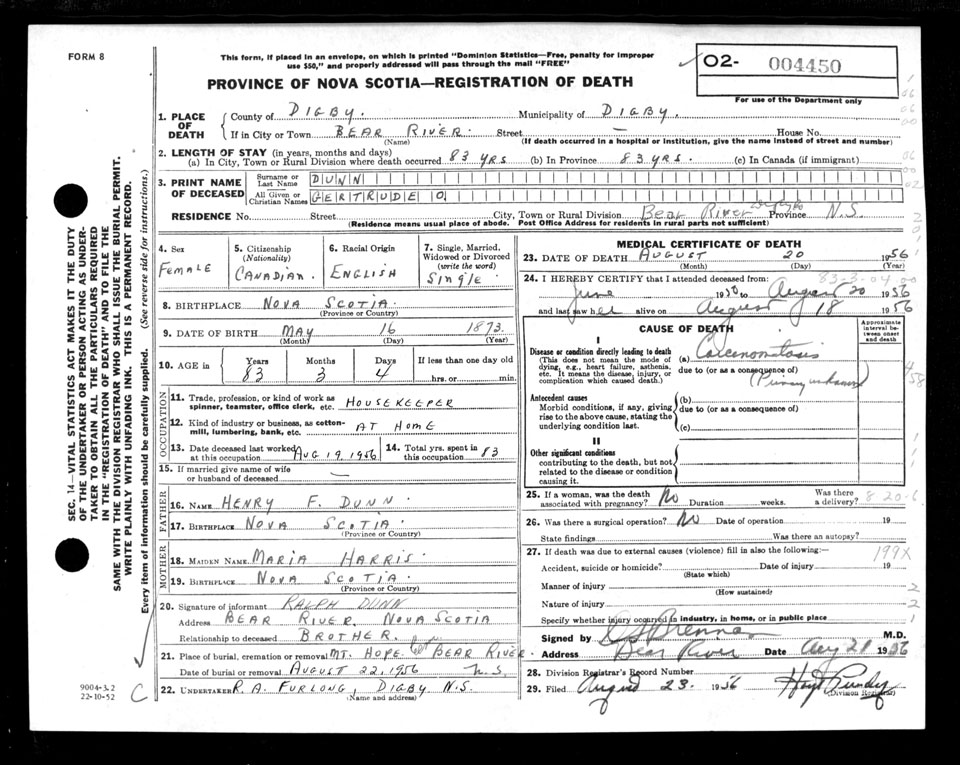 FORM 8
This form, if placed in an envelope, on which is printed "Dominion Statistics—Free, penalty for improper
use $50," and properly addressed will pass through the mail "FREE"
PROVINCE OF NOVA SCOTIA—REGISTRATION OF DEATH
O2- 004450
For use of the Department only
SEC. 14—VITAL STATISTICS ACT MAKES IT THE DUTY
OF THE UNDERTAKER OR PERSON ACTING AS UNDER-
TAKER TO OBTAIN ALL THE PARTICULARS REQUIRED
IN THE "REGISTRATION OF DEATH" AND TO FILE THE
SAME WITH THE DIVISION REGISTRAR WHO SHALL ISSUE THE BURIAL PERMIT.
WRITE PLAINLY WITH UNFADING INK. THIS IS A PERMANENT RECORD.
Every item of information should be carefully supplied. (See reverse side for instructions.)
1. PLACE OF DEATH
County of DIGBY. Municipality of DIGBY.
If in City or Town BEAR RIVER. Street — House No.
(Name) (If death occurred in a hospital or institution, give the name instead of street and number)
2. LENGTH OF STAY (in years, months and days)
(a) In City, Town or Rural Division where death occurred 83 YRS (b) In Province 83 YRS. (c) In Canada (if immigrant)
3. PRINT NAME OF DECEASED
Surname or Last Name DUNN
All Given or Christian Names GERTRUDE O.
RESIDENCE No. Street City, Town or Rural Division Bear River Digby Co Province N.S.
(Residence means usual place of abode. Post Office Address for residents in rural parts not sufficient)
4. Sex
Female
5. Citizenship
(Nationality)
CANADIAN.
6. Racial Origin
ENGLISH
7. Single, Married,
Widowed or Divorced
(write the word)
Single
8. BIRTHPLACE NOVA SCOTIA.
(Province or Country)
9. DATE OF BIRTH MAY 16 1873.
(Month) (Day) (Year)
10. AGE IN
Years Months Days If less than one day old
83 3 4 hrs. or min.
OCCUPATION
11. Trade, profession, or kind of work as
spinner, teamster, office clerk, etc. HOUSEKEEPER
12. Kind of industry or business, as cotton-
mill, lumbering, bank, etc. AT HOME
13. Date deceased last worked
at this occupation AUG 19, 1956
14. Total yrs. spent in
this occupation 83
15. If married give name of wife
or husband of deceased —
FATHER
16. NAME HENRY F. DUNN
17. BIRTHPLACE NOVA SCOTIA.
(Province or Country)
MOTHER
18. MAIDEN NAME MARIA HARRIS.
19. BIRTHPLACE NOVA SCOTIA.
(Province or Country)
20. Signature of informant RALPH DUNN
Address BEAR RIVER. NOVA SCOTIA
Relationship to deceased BROTHER.
21. Place of burial, cremation or removal MT. HOPE BEAR RIVER.
Date of burial or removal AUGUST 22, 1956 N.S.
22. UNDERTAKER R. A. FURLONG, DIGBY N.S.
(Name and address)
9004-3.2
22-10-52
C
MEDICAL CERTIFICATE OF DEATH
23. DATE OF DEATH AUGUST 20 1956
(Month) (Day) (Year)
83-3-04
24. I HEREBY CERTIFY that I attended deceased from:
June 1950 to August 20 1956
and last saw her alive on August 18 1956
CAUSE OF DEATH
Approximate
interval be-
tween onset
and death
I
Disease or condition directly leading to death
(This does not mean the mode of
dying, e.g., heart failure, asthenia,
etc. It means the disease, injury, or
complication which caused death.)
(a) Carcinomatosis
due to (or as a consequence of)
(Primary unknown)
Antecedent causes
Morbid conditions, if any, giving
rise to the above cause, stating the
underlying condition last.
(b)
due to (or as a consequence of)
(c)
II
Other significant conditions
contributing to the death, but not
related to the disease or condition
causing it.
25. If a woman, was the death
associated with pregnancy? No Duration weeks. Was there
a delivery?
8 20-6
26. Was there a surgical operation? No Date of operation 19
State findings Was there an autopsy?
27. If death was due to external causes (violence) fill in also the following:—
199X
Accident, suicide or homicide? Date of injury 19
(State which)
Manner of injury
(How sustained)
Nature of injury
Specify whether injury occurred in industry, in home, or in public place
Signed by Brennan M.D.
Address Bear River Date Aug 21 1956
28. Division Registrar's Record Number
29. Filed August 23. 1956 Purdy
(Division Registrar)